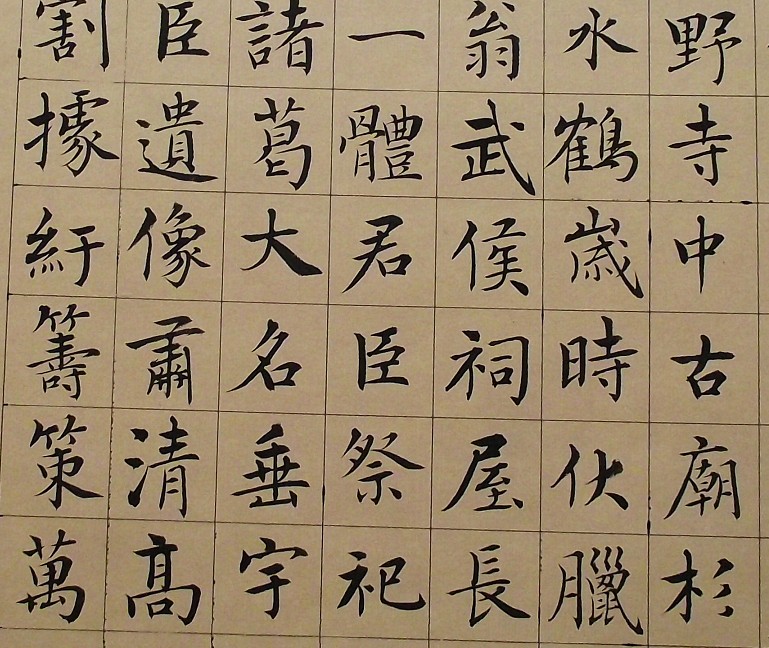 野寺中古廟杉
水鶴歲時伏臘
翁武侯祠屋長
一體君臣祭祀
諸葛大名垂宇
臣遺像肅清高
割據紆籌策萬